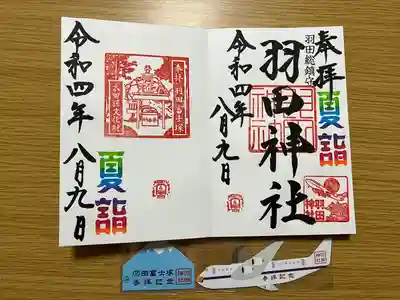 奉拝
羽田総鎮守
羽田神社
夏詣
令和四年 八月九日
羽田
神社
奉拝 羽田富士塚
大田区文化財
令和四年 八月九日
夏詣
羽田富士塚
参拝記念
参拝記念